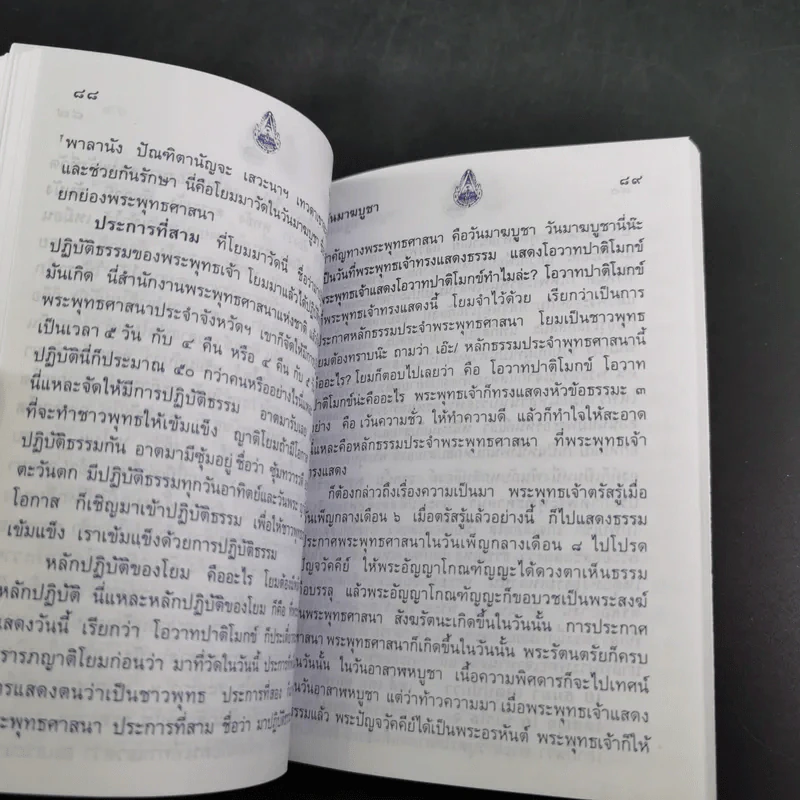 ๘๘
"พาลานัง ปัณฑิตานัญจะ เสวะนาฯ
และช่วยกันรักษา นี่คือโยมมาวัดในวันมาฆบูชา
ยกย่องพระพุทธศาสนา
ประการที่สาม ที่โยมมาวัดนี้ ชื่อว่า
ปฏิบัติธรรมของพระพุทธเจ้า โยมมาแล้วได้
มันเกิด นี่สำนักงานพระพุทธศาสนาแห่งชาติ
พระพุทธศาสนาประจำจังหวัดฯ เขาก็จัดให้มี
เป็นเวลา ๕ วัน กับ ๔ คืน หรือ ๔ คืน กับ ๕
ปฏิบัตินี้ก็ประมาณ ๕๐ กว่าคนหรืออย่างไรนี่
นี่แหละจัดให้มีการปฏิบัติธรรม อาตมารับเลย
ที่จะทำชาวพุทธให้เข้มแข็ง ญาติโยมถ้ามีโอกาส
ปฏิบัติธรรมกัน อาตมามีซุ้มอยู่ ชื่อว่า ซุ้มทวาร
ตะวันตก มีปฏิบัติธรรมทุกวันอาทิตย์และวันพระ
โอกาส ก็เชิญมาเข้าปฏิบัติธรรม เพื่อให้ชาวพุทธ
เข้มแข็ง เราเข้มแข็งด้วยการปฏิบัติธรรม
หลักปฏิบัติของโยม คืออะไร โยมต้อง
หลักปฏิบัติ นี่แหละหลักปฏิบัติของโยม ก็คือ
แสดงวันนี้ เรียกว่า โอวาทปาติโมกข์
รารภญาติโยมก่อนว่า มาที่วัดในวันนี้
ารแสดงตนว่าเป็นชาวพุทธ ประการที่สอง
ระพุทธศาสนา ประการที่สาม ชื่อว่า
๘๙
วันมาฆบูชา
สำคัญทางพระพุทธศาสนา คือวันมาฆบูชา วันมาฆบูชานี่น๊ะ
เป็นวันที่พระพุทธเจ้าทรงแสดงธรรม แสดงโอวาทปาติโมกข์
พระพุทธเจ้าแสดงโอวาทปาติโมกข์ทำไมล่ะ? โอวาทปาติโมกข์
ที่พระพุทธเจ้าทรงแสดงนี้ โยมจำไว้ด้วย เรียกว่าเป็นการ
ประกาศหลักธรรมประจำพระพุทธศาสนา โยมเป็นชาวพุทธ
โยมต้องทราบน๊ะ ถามว่า เอ๊ะ/ หลักธรรมประจำพุทธศาสนานี้
คืออะไร? โยมก็ตอบไปเลยว่า คือ โอวาทปาติโมกข์ โอวาท
ปาติโมกข์น่ะคืออะไร พระพุทธเจ้าก็ทรงแสดงหัวข้อธรรมะ ๓
อย่าง คือ เว้นความชั่ว ให้ทำความดี แล้วก็ทำใจให้สะอาด
นี่แหละคือหลักธรรมประจำพระพุทธศาสนา ที่พระพุทธเจ้า
ทรงแสดง
ก็ต้องกล่าวถึงเรื่องความเป็นมา พระพุทธเจ้าตรัสรู้เมื่อ
วันเพ็ญกลางเดือน ๖ เมื่อตรัสรู้แล้วอย่างนี้ ก็ไปแสดงธรรม
ประกาศพระพุทธศาสนาในวันเพ็ญกลางเดือน ๘ ไปโปรด
ปัญจวัคคีย์ ให้พระอัญญาโกณฑัญญะได้ดวงตาเห็นธรรม
คือบรรลุ แล้วพระอัญญาโกณฑัญญะก็ขอบวชเป็นพระสงฆ์
ในพระพุทธศาสนา สังฆรัตนะเกิดขึ้นในวันนั้น การประกาศ
ศาสนา พระพุทธศาสนาก็เกิดขึ้นในวันนั้น พระรัตนตรัยก็ครบ
ในวันนั้น ในวันอาสาฬหบูชา เนื้อความพิศดารก็จะไปเทศน์
ในวันอาสาฬหบูชา แต่ว่าท้าวความมา เมื่อพระพุทธเจ้าแสดง
ธรรมแล้ว พระปัญจวัคคีย์ได้เป็นพระอรหันต์ พระพุทธเจ้าก็ให้